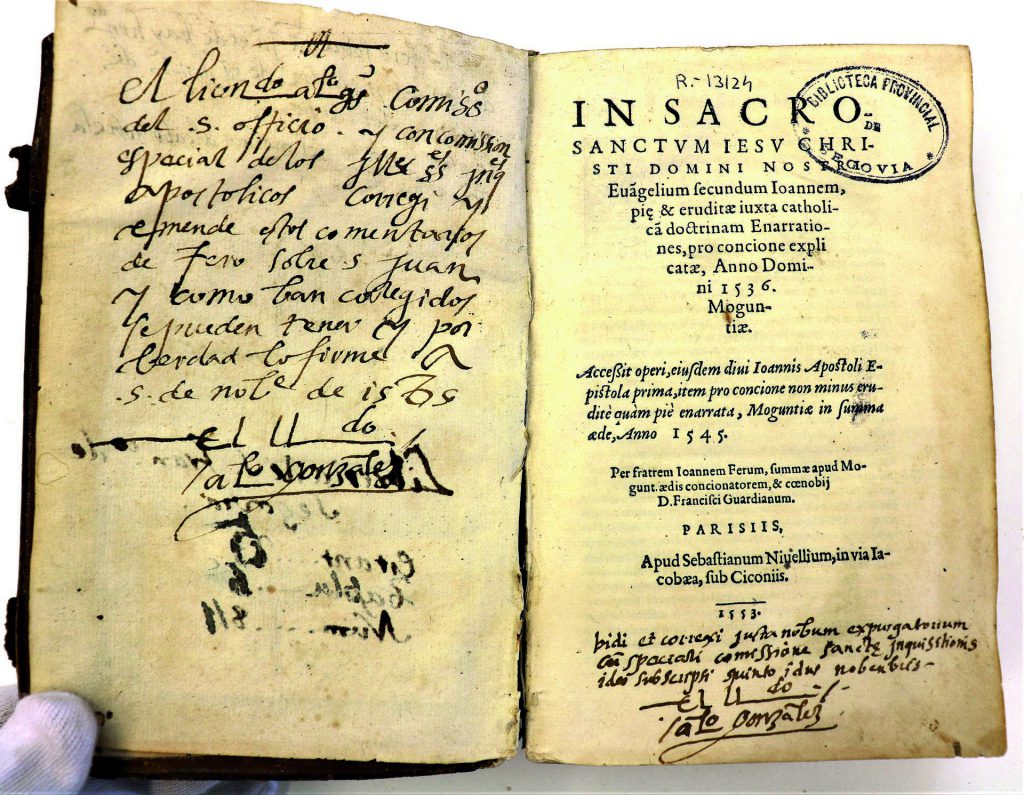 El licen.do a.lo gs Comiss.o
del .s. officio . y con comission
especial de los Ill.es ss.es jnq
apostolicos Corregi y
emende estos comentarios
de Fero sobre s. Juan
y como ban coregidos
se pueden tener y por
berdad lo firme a
.s. de nob.e de
El ll.do
alo gonzalez
Grant.
Tabla
Num. 8/1
R.-13124
BIBLIOTECA PROVINCIAL
DE
* SEGOVIA *
IN SACRO-
SANCTVM IESV CHRI-
STI DOMINI NOSTRI
Euãgelium secundum Ioannem,
pię & eruditæ iuxta catholi-
cã doctrinam Enarratio-
nes, pro concione expli
catæ, Anno Domi-
ni 1536.
Mogun-
tiæ.
Accessit operi, eiusdem diui Ioannis Apostoli E-
pistola prima, item pro concione non minus eru-
ditè quàm piè enarrata, Moguntiæ in summa
æde, Anno 1545.
Per fratrem Ioannem Ferum, summæ apud Mo-
gunt. ædis concionatorem, & cœnobij
D. Francisci Guardianum.
PARISIIS,
Apud Sebastianum Niuellium, in via Ia-
cobæa, sub Ciconiis.
1553.
bidi et correxi justa nobum expurgatorium
cũ speciali comissione sanctę jnquisitionis
ideo subscripsi quinto idus nobenbris -
El ll.do
alo gonzalez